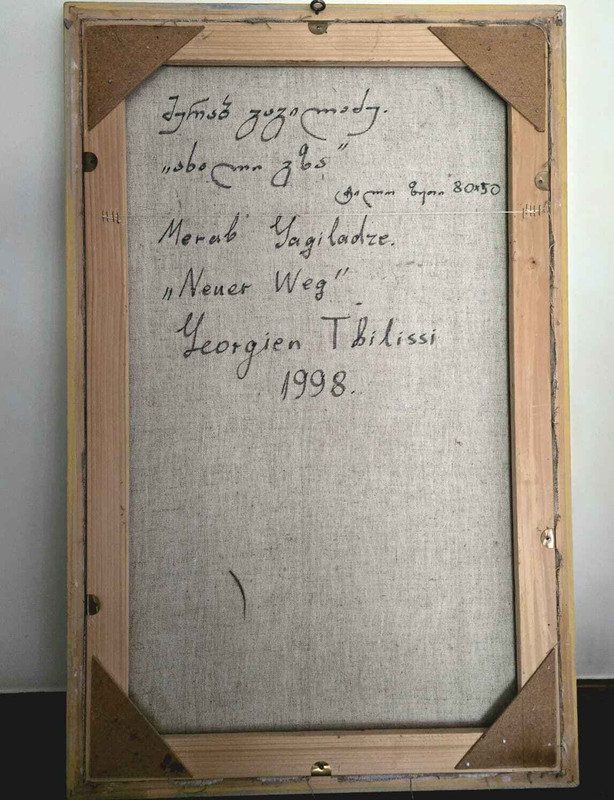 მერაბ გაგილაძე.
„ახალი გზა"
ტილო ზეთი 80x50
Merab Gagiladze.
„Neuer Weg"
Georgien Tbilissi
1998.